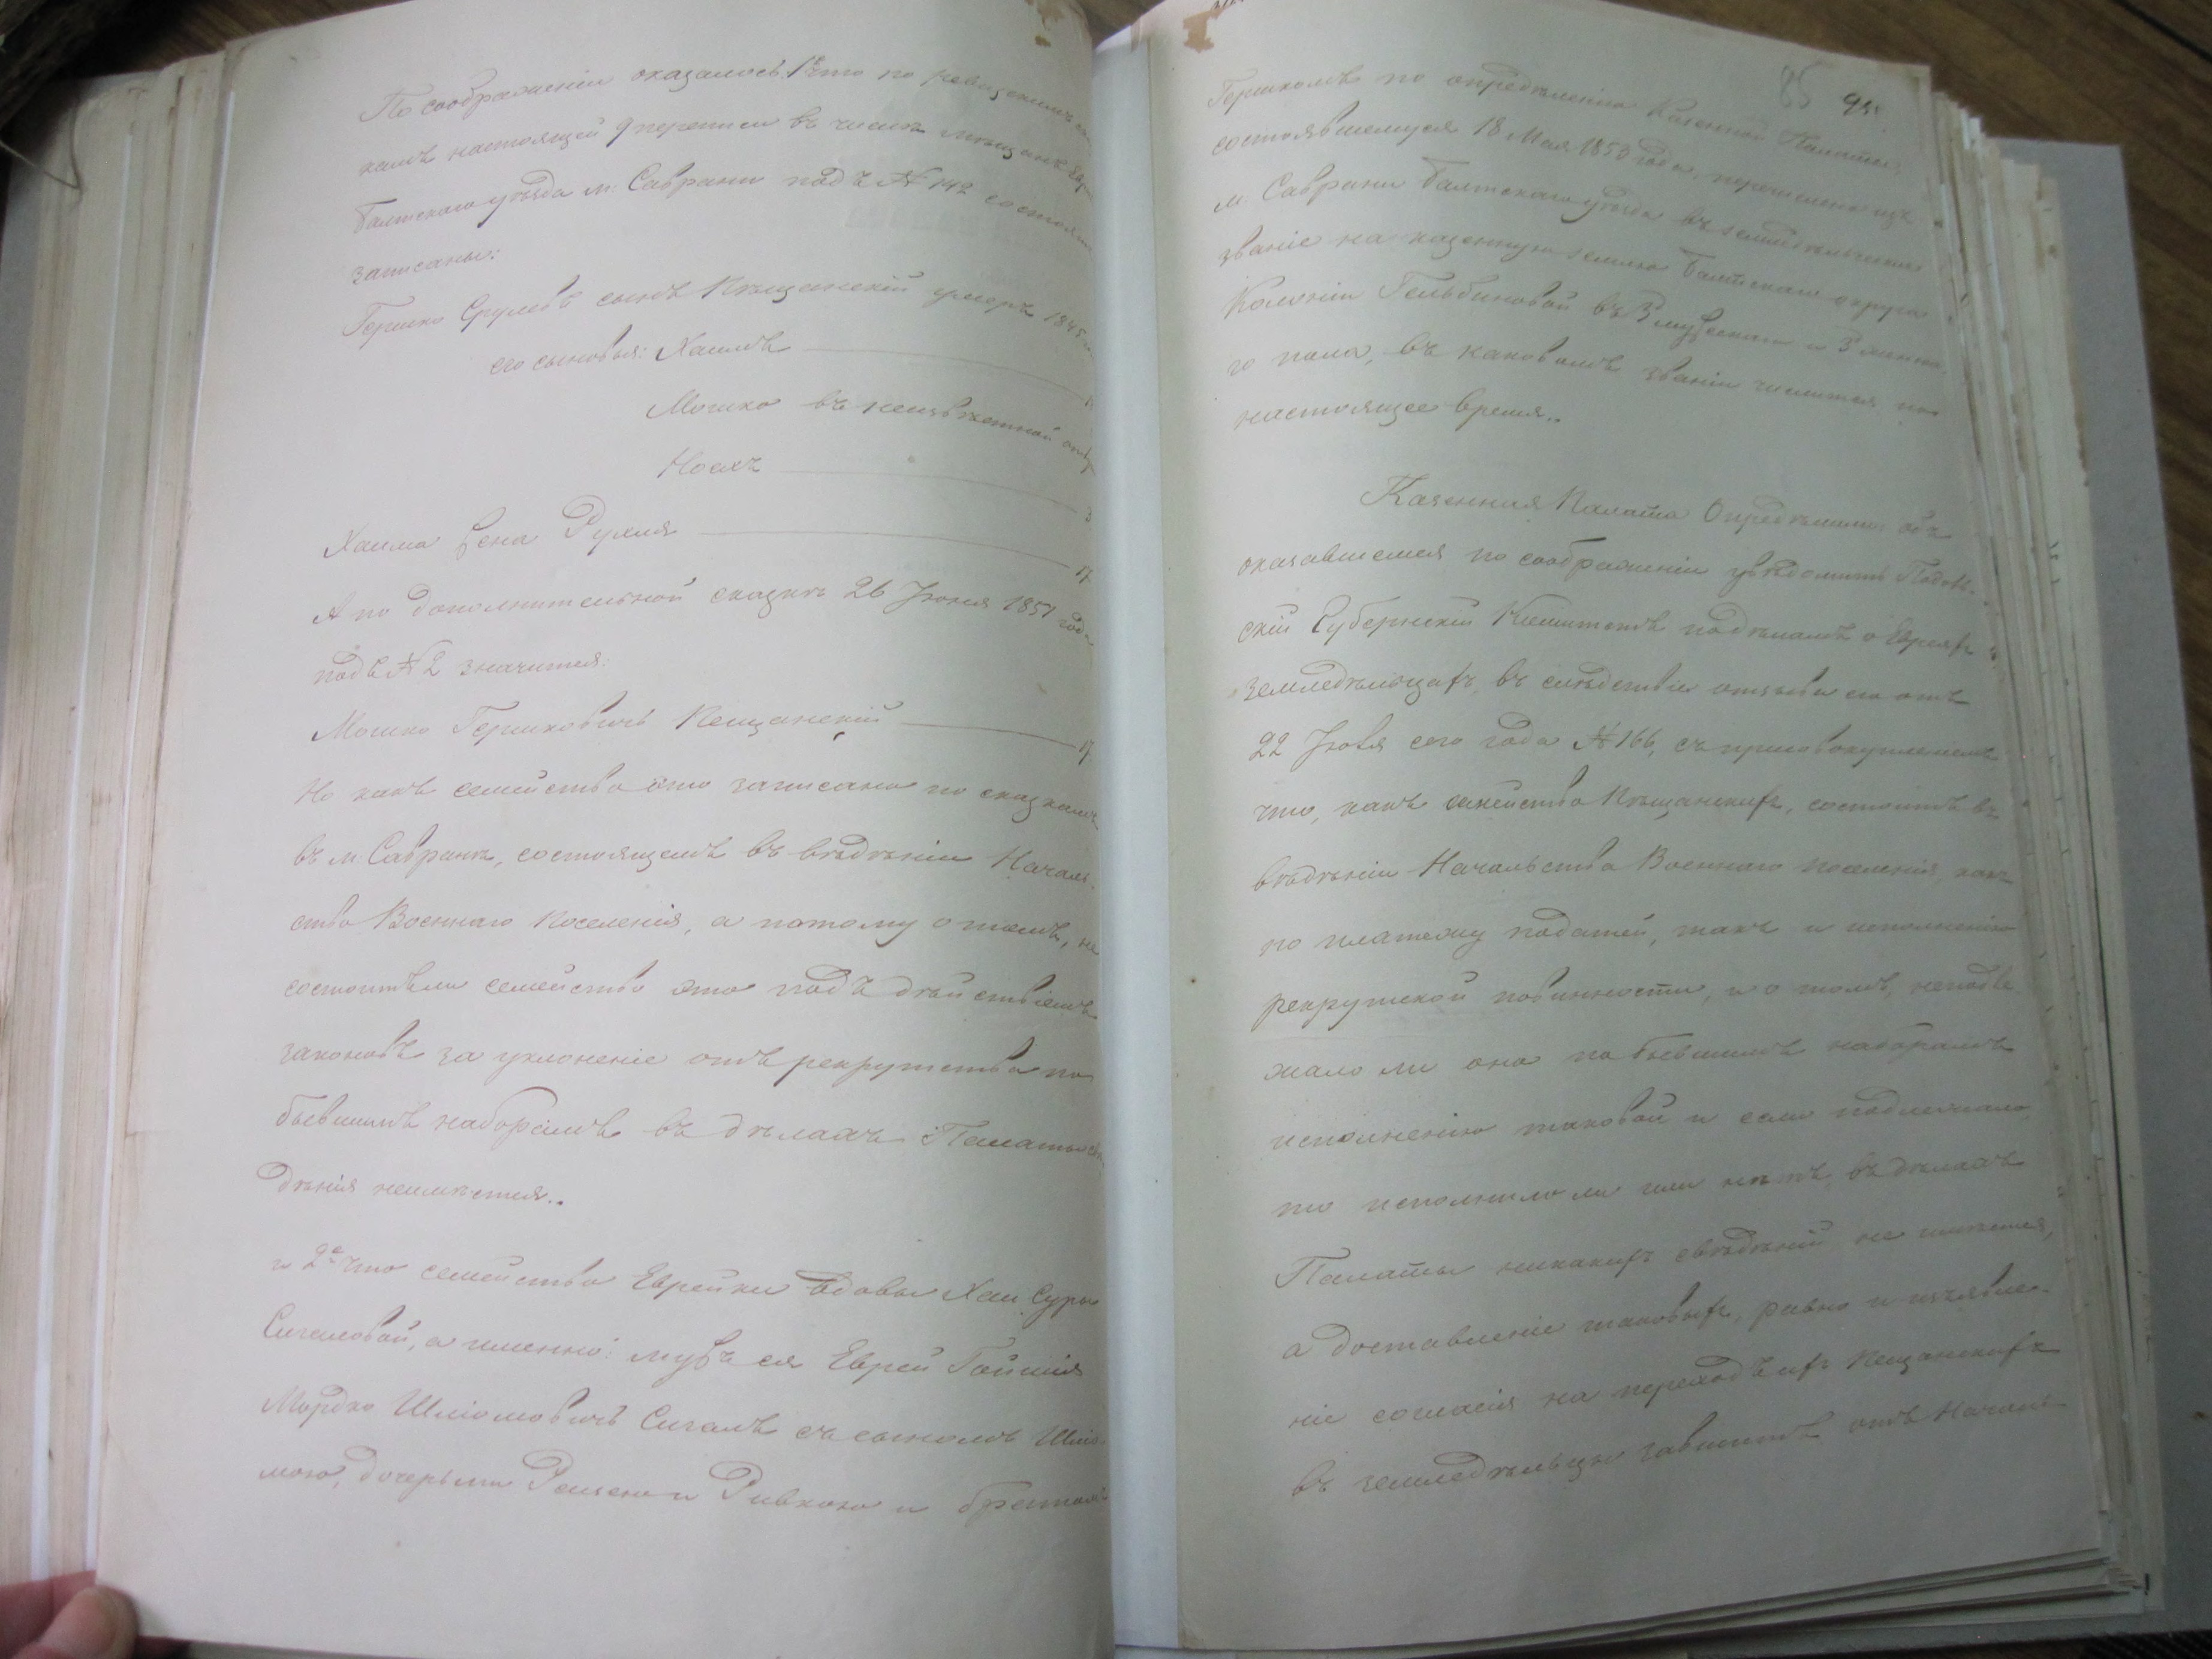 По соображеніи оказалось: 1е что по ревизскимъ
камъ настоящей 9 переписи въ числѣ мѣщанъ
Балтскаго уѣзда м: Саврани подъ № 142
записаны:
Гершко Сруловъ сынъ Пѣщанскій умеръ 1845
его сыновья: Хаимъ
Мошко въ неизвѣстной
Носяхъ 3
Хаима жена Рухля 17
А по дополнительной сказкѣ 26 Іюня 1851 года
подъ № 2 значится:
Мошко Гершковичь Пещанскій 17
Но какъ семейство это записано по сказкамъ
въ м: Савранѣ, состоящемъ въ вѣдѣніи Началь-
ства Военнаго Поселенія, а потому о томъ, не
состоитъ ли семейство это подъ дѣйствіемъ
законовъ за уклоненіе отъ рекрутства по
бывшимъ наборамъ въ дѣлахъ Палаты
дѣнія неимѣется..
и 2е Что семейство Еврейки вдовы Хаи Суры
Сигаловой, а именно: мужъ ея Еврей
Мордко Шліомовичъ Сигалъ съ сыномъ Шліо-
мою, дочерьми и Ривкою и братомъ
85 95
Гершкомъ по опредѣленію Казенной Палаты,
состоявшемуся 18 Мая 1853 года, перечислено изъ
м: Саврани Балтскаго уѣзда въ земледѣльческое
званіе на казенную землю Балтскаго округа
Колоніи Гельбиновой въ 3 мужескаго и 3 женска-
го пола, въ каковомъ званіи числится по
настоящее время..
Казенная Палата Опредѣлила: объ
оказавшемся по соображеніи увѣдомить Подоль-
скій Губернскій Комитетъ по дѣламъ о Евреяхъ
земледѣльцахъ, въ слѣдствіе отзыва его отъ
22 сего года № 166, съ присовокупленіемъ
что, какъ семейство Пѣщанскихъ, состоитъ въ
вѣдѣніи Начальства Военнаго поселенія, какъ
по платежу податей, такъ и исполненію
рекрутской повинности, и о томъ, неподле-
жало ли оно по бывшимъ наборамъ
исполненію таковой и если подлежало,
то исполнило ли или нѣтъ, въ дѣлахъ
Палаты никакихъ свѣдѣній не имѣется,
а доставленіе таковыхъ, равно и изъявле-
ніе согласія на переходъ ихъ Пещанскихъ
въ земледѣльцы зависитъ отъ Началь-